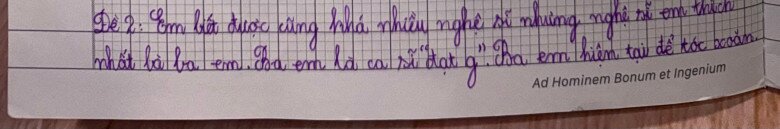 Đề 2: Em biết được cũng khá nhiều nghệ sĩ nhưng nghệ sĩ em thích
nhất là ba em. Ba em là ca sĩ "đạt g". Ba em hiện tại để tóc xoăn.
Ad Hominem Bonum et Ingenium